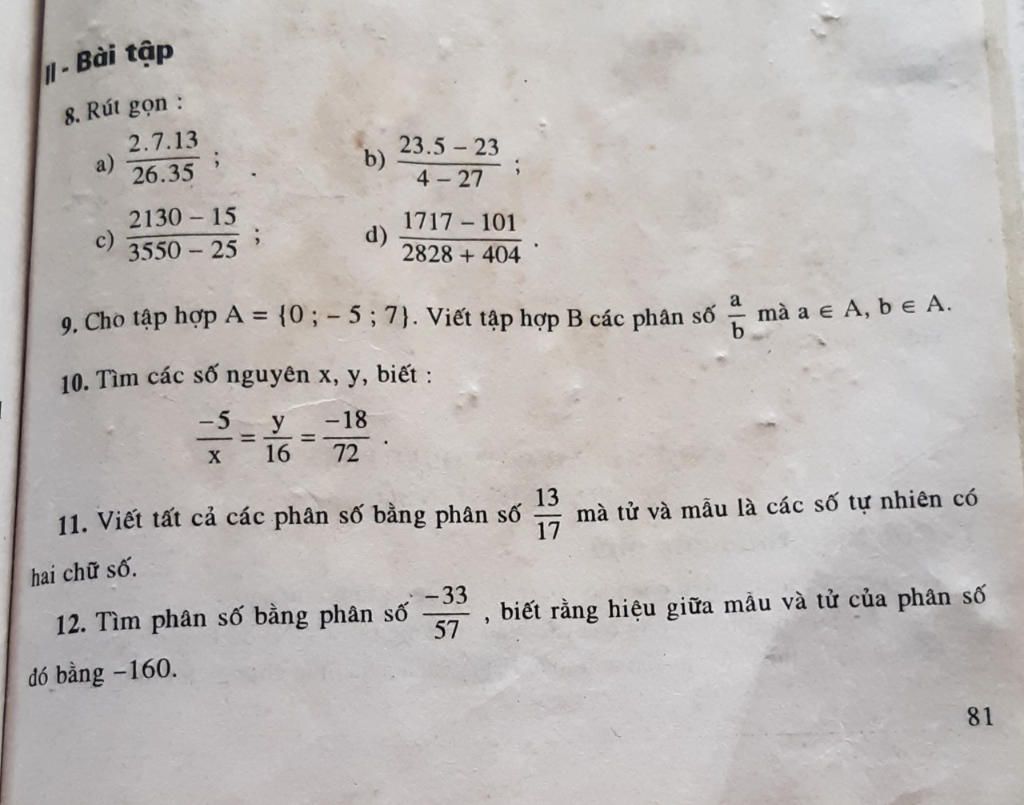 II - Bài tập
8. Rút gọn :
a) \frac{2.7.13}{26.35} ; b) \frac{23.5 – 23}{4 – 27} ;
c) \frac{2130 – 15}{3550 – 25} ; d) \frac{1717 – 101}{2828 + 404} .
9. Cho tập hợp A = {0 ; – 5 ; 7}. Viết tập hợp B các phân số \frac{a}{b} mà a ∈ A, b ∈ A.
10. Tìm các số nguyên x, y, biết :
\frac{–5}{x} = \frac{y}{16} = \frac{–18}{72} .
11. Viết tất cả các phân số bằng phân số \frac{13}{17} mà tử và mẫu là các số tự nhiên có
hai chữ số.
12. Tìm phân số bằng phân số \frac{–33}{57} , biết rằng hiệu giữa mẫu và tử của phân số
đó bằng –160.
81